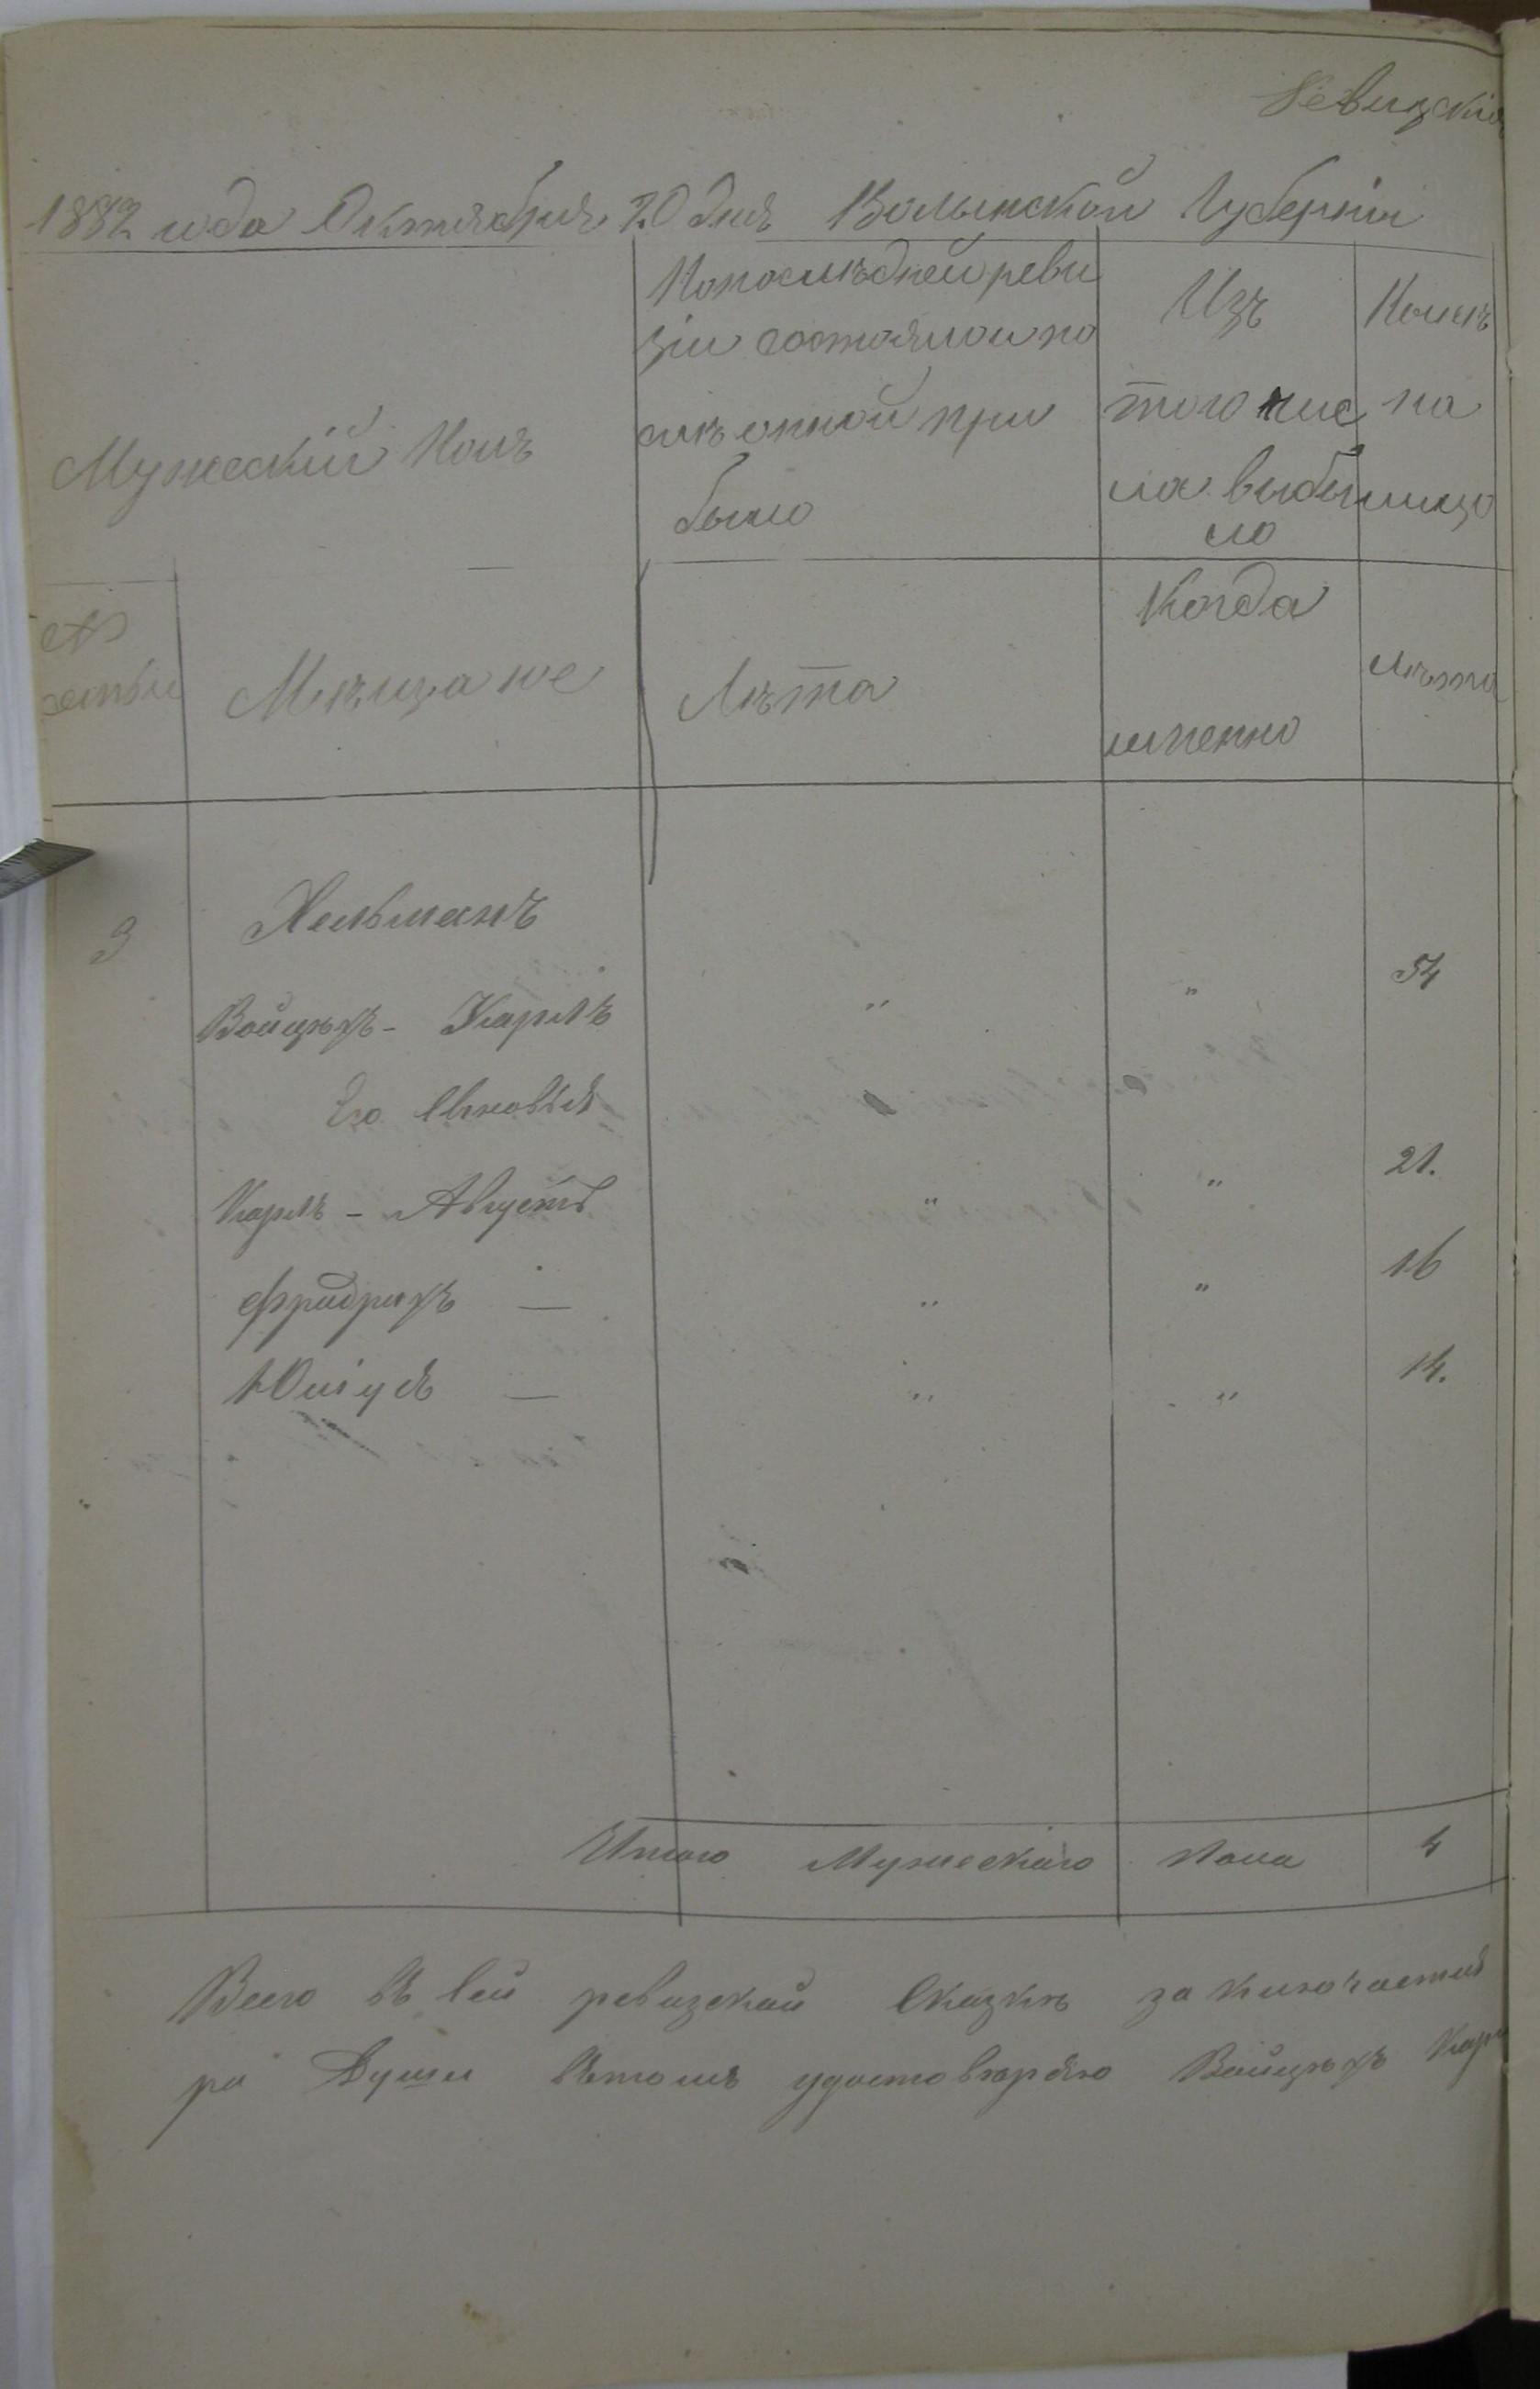 Ревизская
1882 года Октября 20 дня Волынской Губерніи
Мужескій Полъ
По последней реви
зіи состояло и по
слѣ оной при
было
Изъ
того чис
ла выбы
ло
Нынѣ
на
лицо
№
семьи
Мѣщане
Лѣта
Когда
именно
Лѣта
3
Хельманъ
Войцѣхъ - Карлъ " " 54
Его Сыновья
Карлъ - Августъ " " 21.
Фридрихъ — " " 16
Юліусъ — " " 14.
Итого Мужескаго пола 4
Всего въ сей ревизской Сказкѣ заключается
ри Души Вътомъ удостовѣряю Войцѣхъ Кар